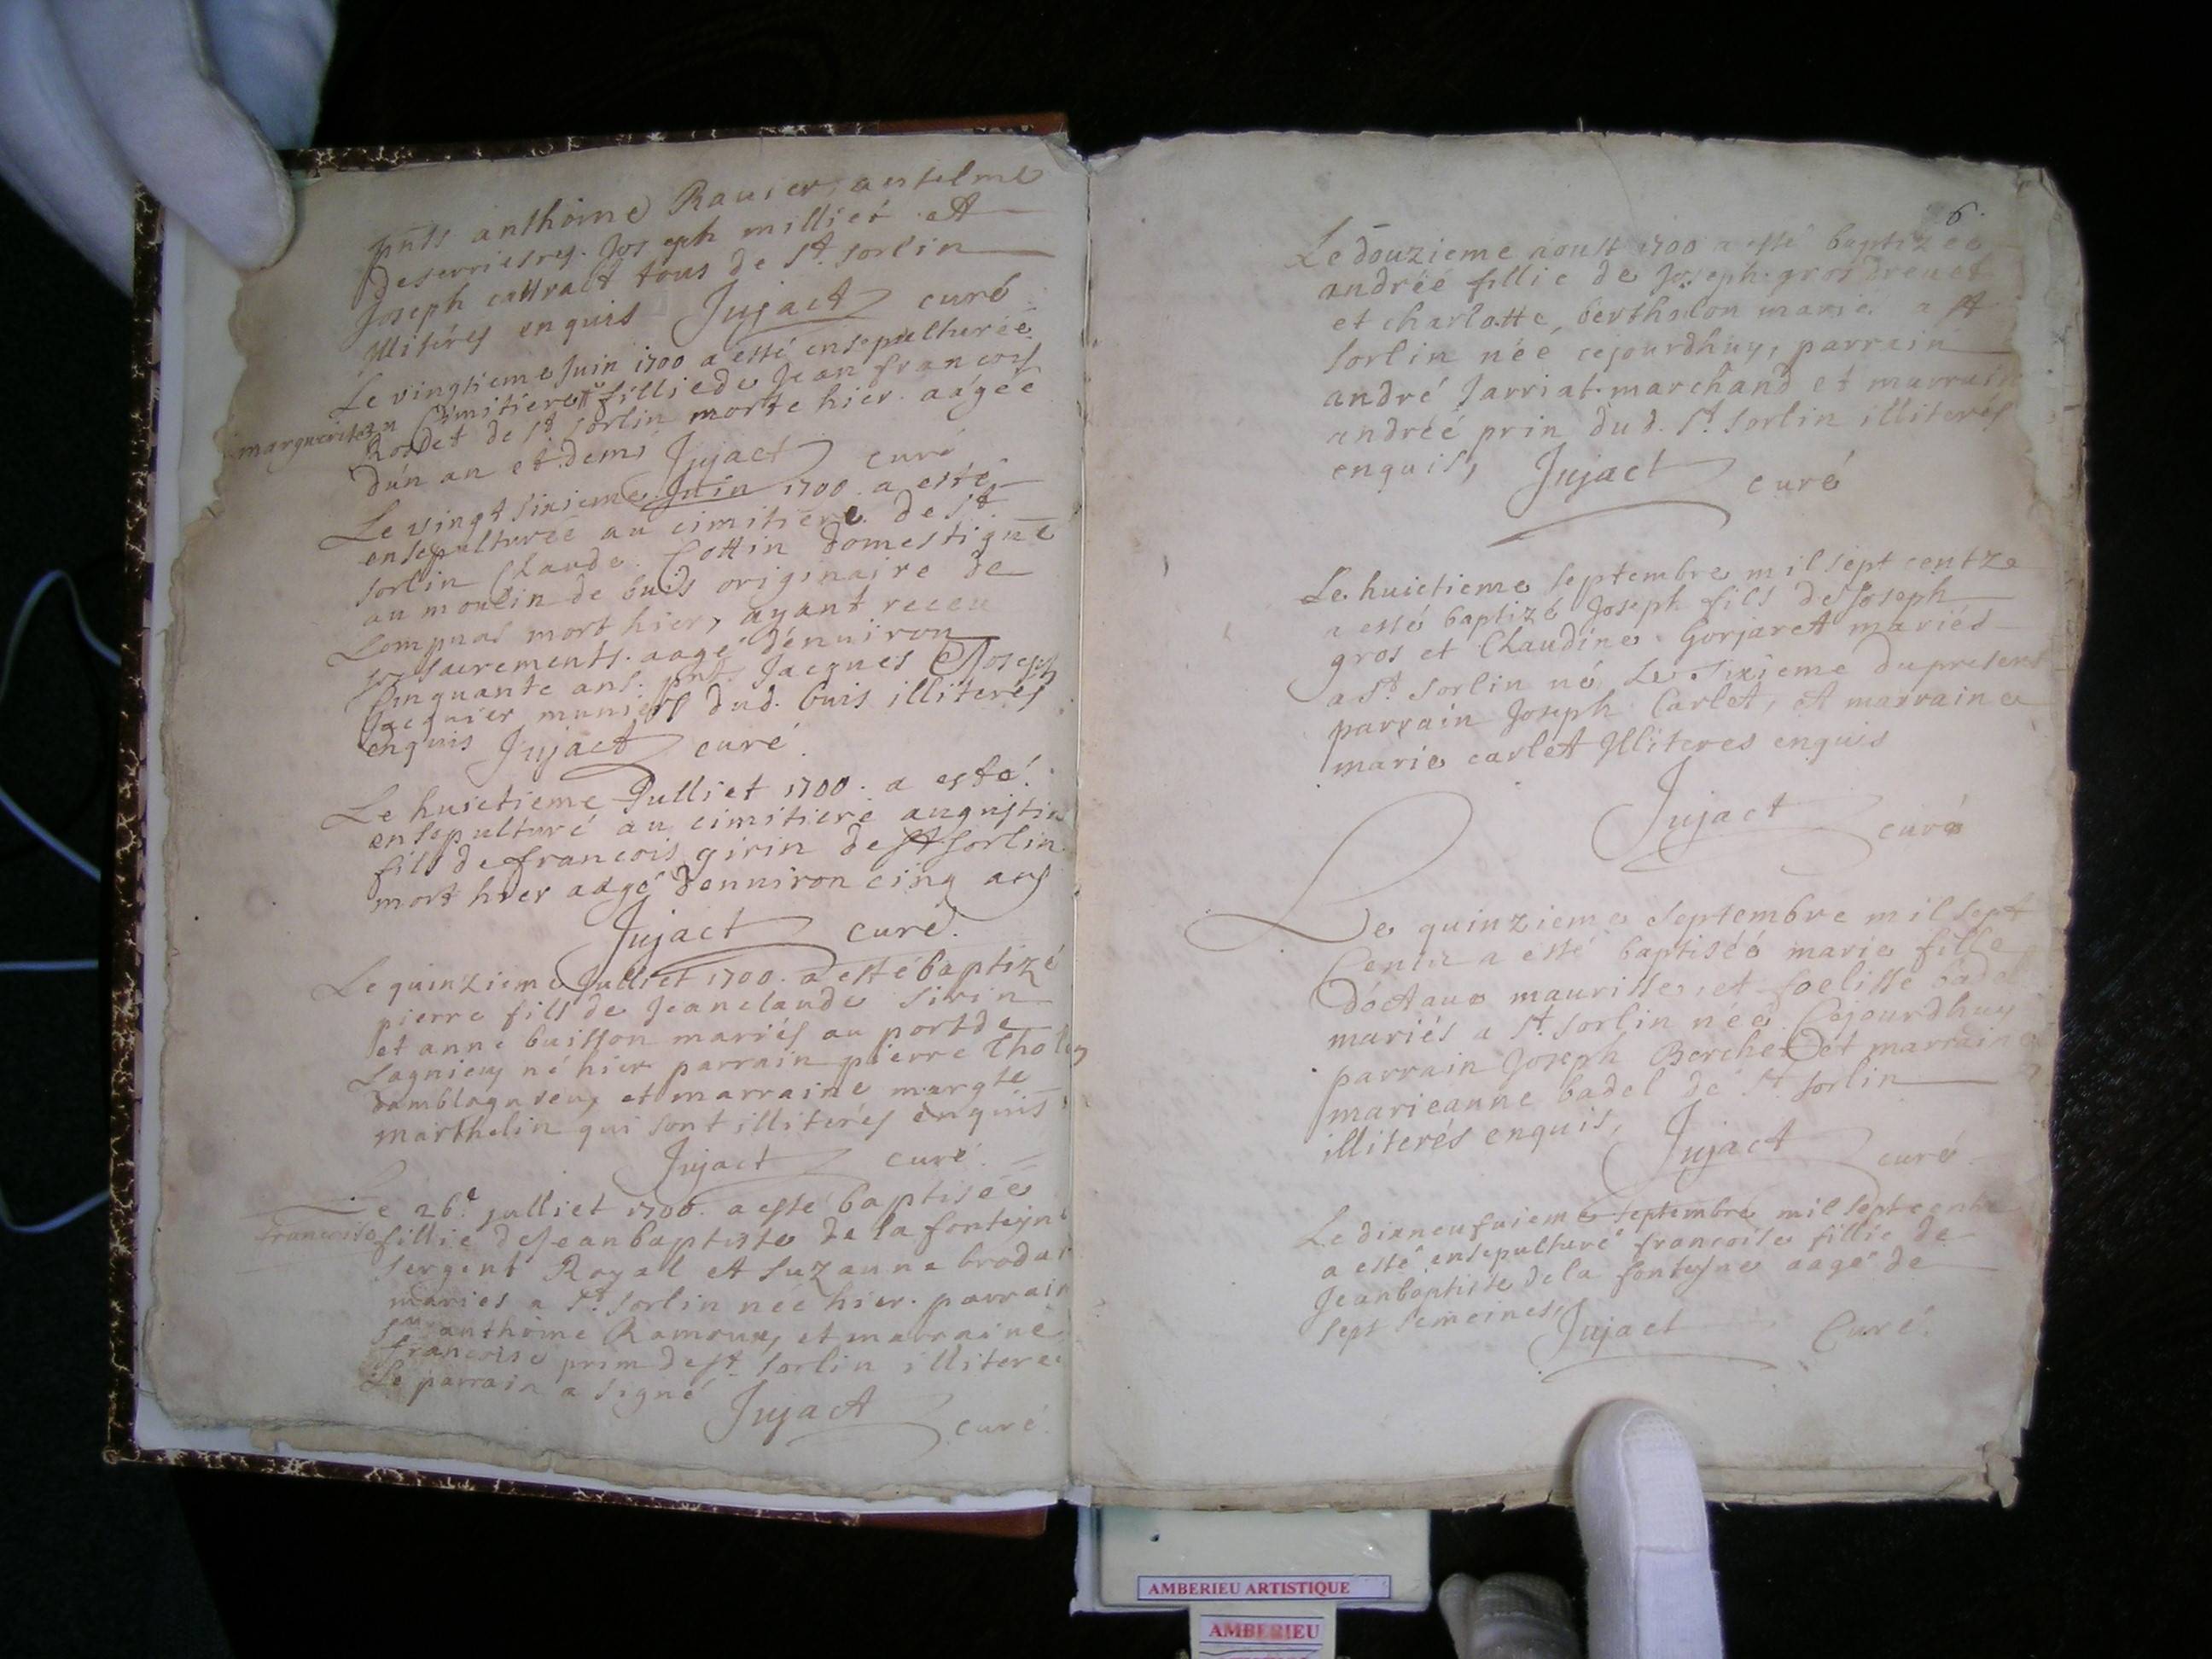 pnts anthoine Rauier, anselme
Deserriesres. Joseph milliet et
Joseph cattract tous de St. sorlin
Illiterés enquis Jujact curé
Le vingtieme Juin 1700 a esté ensepulturéé
margueritte au Cimitiere fillie de Jean francois
Rosdet de St sorlin morte hier. aágeé
dún an et demi Jujact curé
Le vingt sixieme Juin 1700. a esté
ensepulturéé au cimitiere de St.
sorlin Claude. Cottin domestique
au moulin de buis originaire de
Lompnas mort hier, ayant receu
les sacrements. aagé dénuiron
Cinquante ans. pnt. Jacques et Joseph
Jacquier muniers dud. buis illiterés
enquis Jujact curé
Le huictieme Julliet 1700. a esté.
ensepulturé au cimitiere augustin
fils de francois girin de St sorlin
mort hier aagé denuiron cinq ans
Jujact curé.
Le quinzieme Julliet 1700. a esté baptizé
pierre fils de Jeanclaude Sirin
et anne buisson mariés au port de
Lagnieu né hier parrain pierre
damblagnieu, et marraine margte
marthelin qui sont illiterés enquis
Jujact curé.
Le 26e. julliet 1700. a esté baptiséé
francoise fillie de Jeanbaptiste de la fonteyne
sergent Royal et suzanne
mariés a St. sorlin néé hier. parrain
Sr. anthoine Ramoux, et marraine
francoise prin de St. sorlin illiteré
Le parrain a signé Jujact
curé.
6.
Le douzieme aoust 1700 a esté baptizéé
andréé fillie de Joseph gros drevet
et charlotte bertholon marié a St
sorlin néé cejourdhuy, parrain
andré Jarriat marchand et marraine
andréé prin dud. St. sorlin illiterés
enquis, Jujact curé
Le huictieme septembre mil sept centz
a esté baptizé Joseph fils de Joseph
gros et Claudine Gorjaret mariés
a St. sorlin né Le Sixieme du present
parrain Joseph Carlet, et marraine
marie carlet Illiteres enquis
Jujact curé
Le quinzieme septembre mil sept
Centz a esté baptiséé marie fille
doctaue maurisse, et foelisse badel
mariés a St. sorlin néé Cejourdhuy
parrain Joseph Berchet et marraine
marieanne badel de St sorlin
illiterés enquis,
Jujact curé
Le dixneufuieme septembre mil sept centz
a esté ensepulturé francoise fillie de
Jeanbaptiste de la fonteyne aagé de
sept semeines, Jujact Curé.
AMBERIEU ARTISTIQUE
AMBERIEU